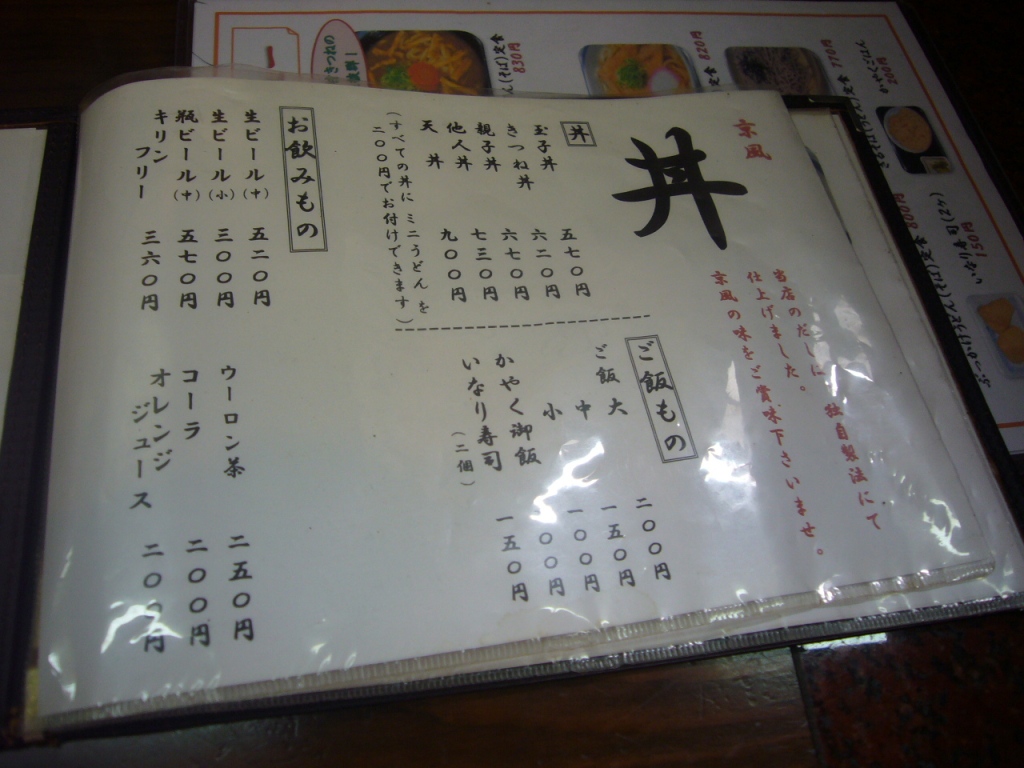 京風
丼
当店のだしは、独自製法にて
仕上げました。
京風の味をご賞味下さいませ。
丼
玉子丼 五七〇円
きつね丼 六二〇円
親子丼 六七〇円
他人丼 七三〇円
天丼 九〇〇円
(すべての丼にミニうどんを
二〇〇円でお付けできます)
ご飯もの
ご飯 大 二〇〇円
中 一五〇円
小 一〇〇円
かやく御飯
いなり寿司(二個) 一五〇円
お飲みもの
生ビール(中) 五二〇円
生ビール(小) 三〇〇円
瓶ビール(中) 五七〇円
キリン
フリー 三六〇円
ウーロン茶 二五〇円
コーラ 二〇〇円
オレンジ
ジュース 二〇〇円
(そば)定食
830円
定食
820円
770円
かやくごはん
200円
いなり寿司(2ケ)
150円